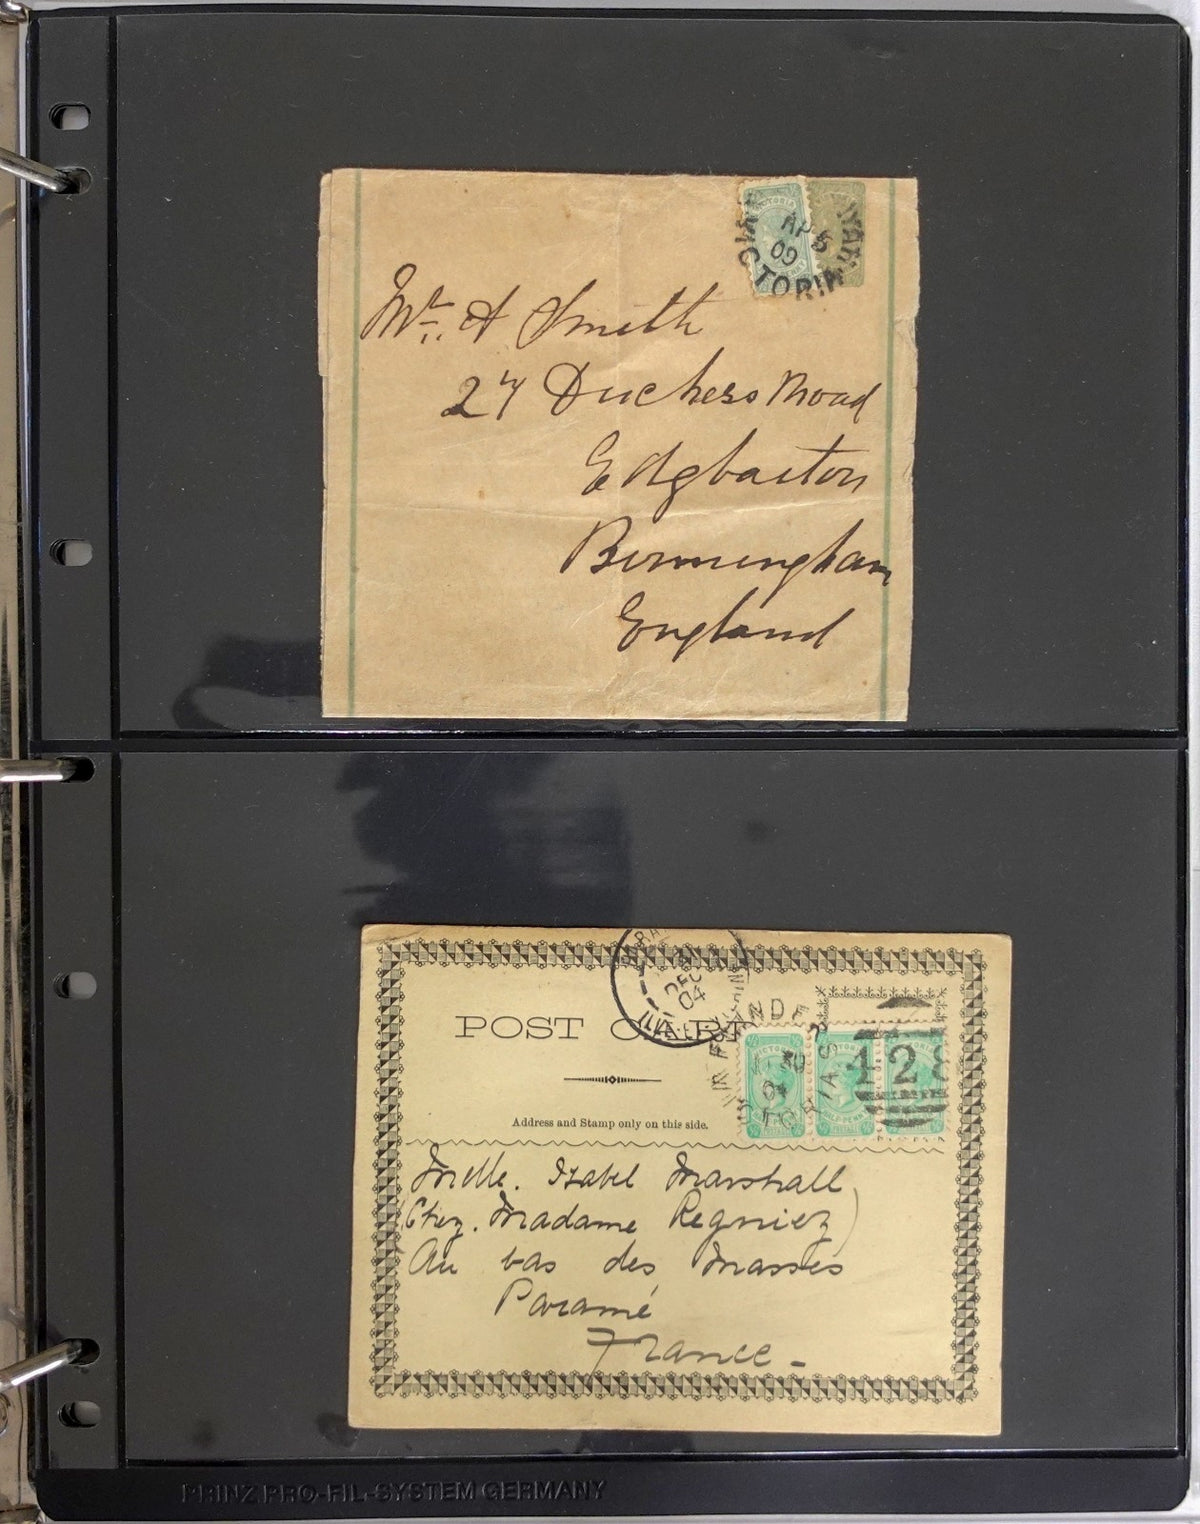 AP 5
09
VICTORIA
Mr. A Smith
27 Duchess Road
Edgbaston
Birmingham
England
POST CARD
DEC
04
VICTORIA
HALF PENNY
Address and Stamp only on this side.
Mlle. Isabel Marshall
(Chez. Madame Regniez)
Au bas des Masses
Paramé
France -
PRINZ PRO-FIL-SYSTEM GERMANY